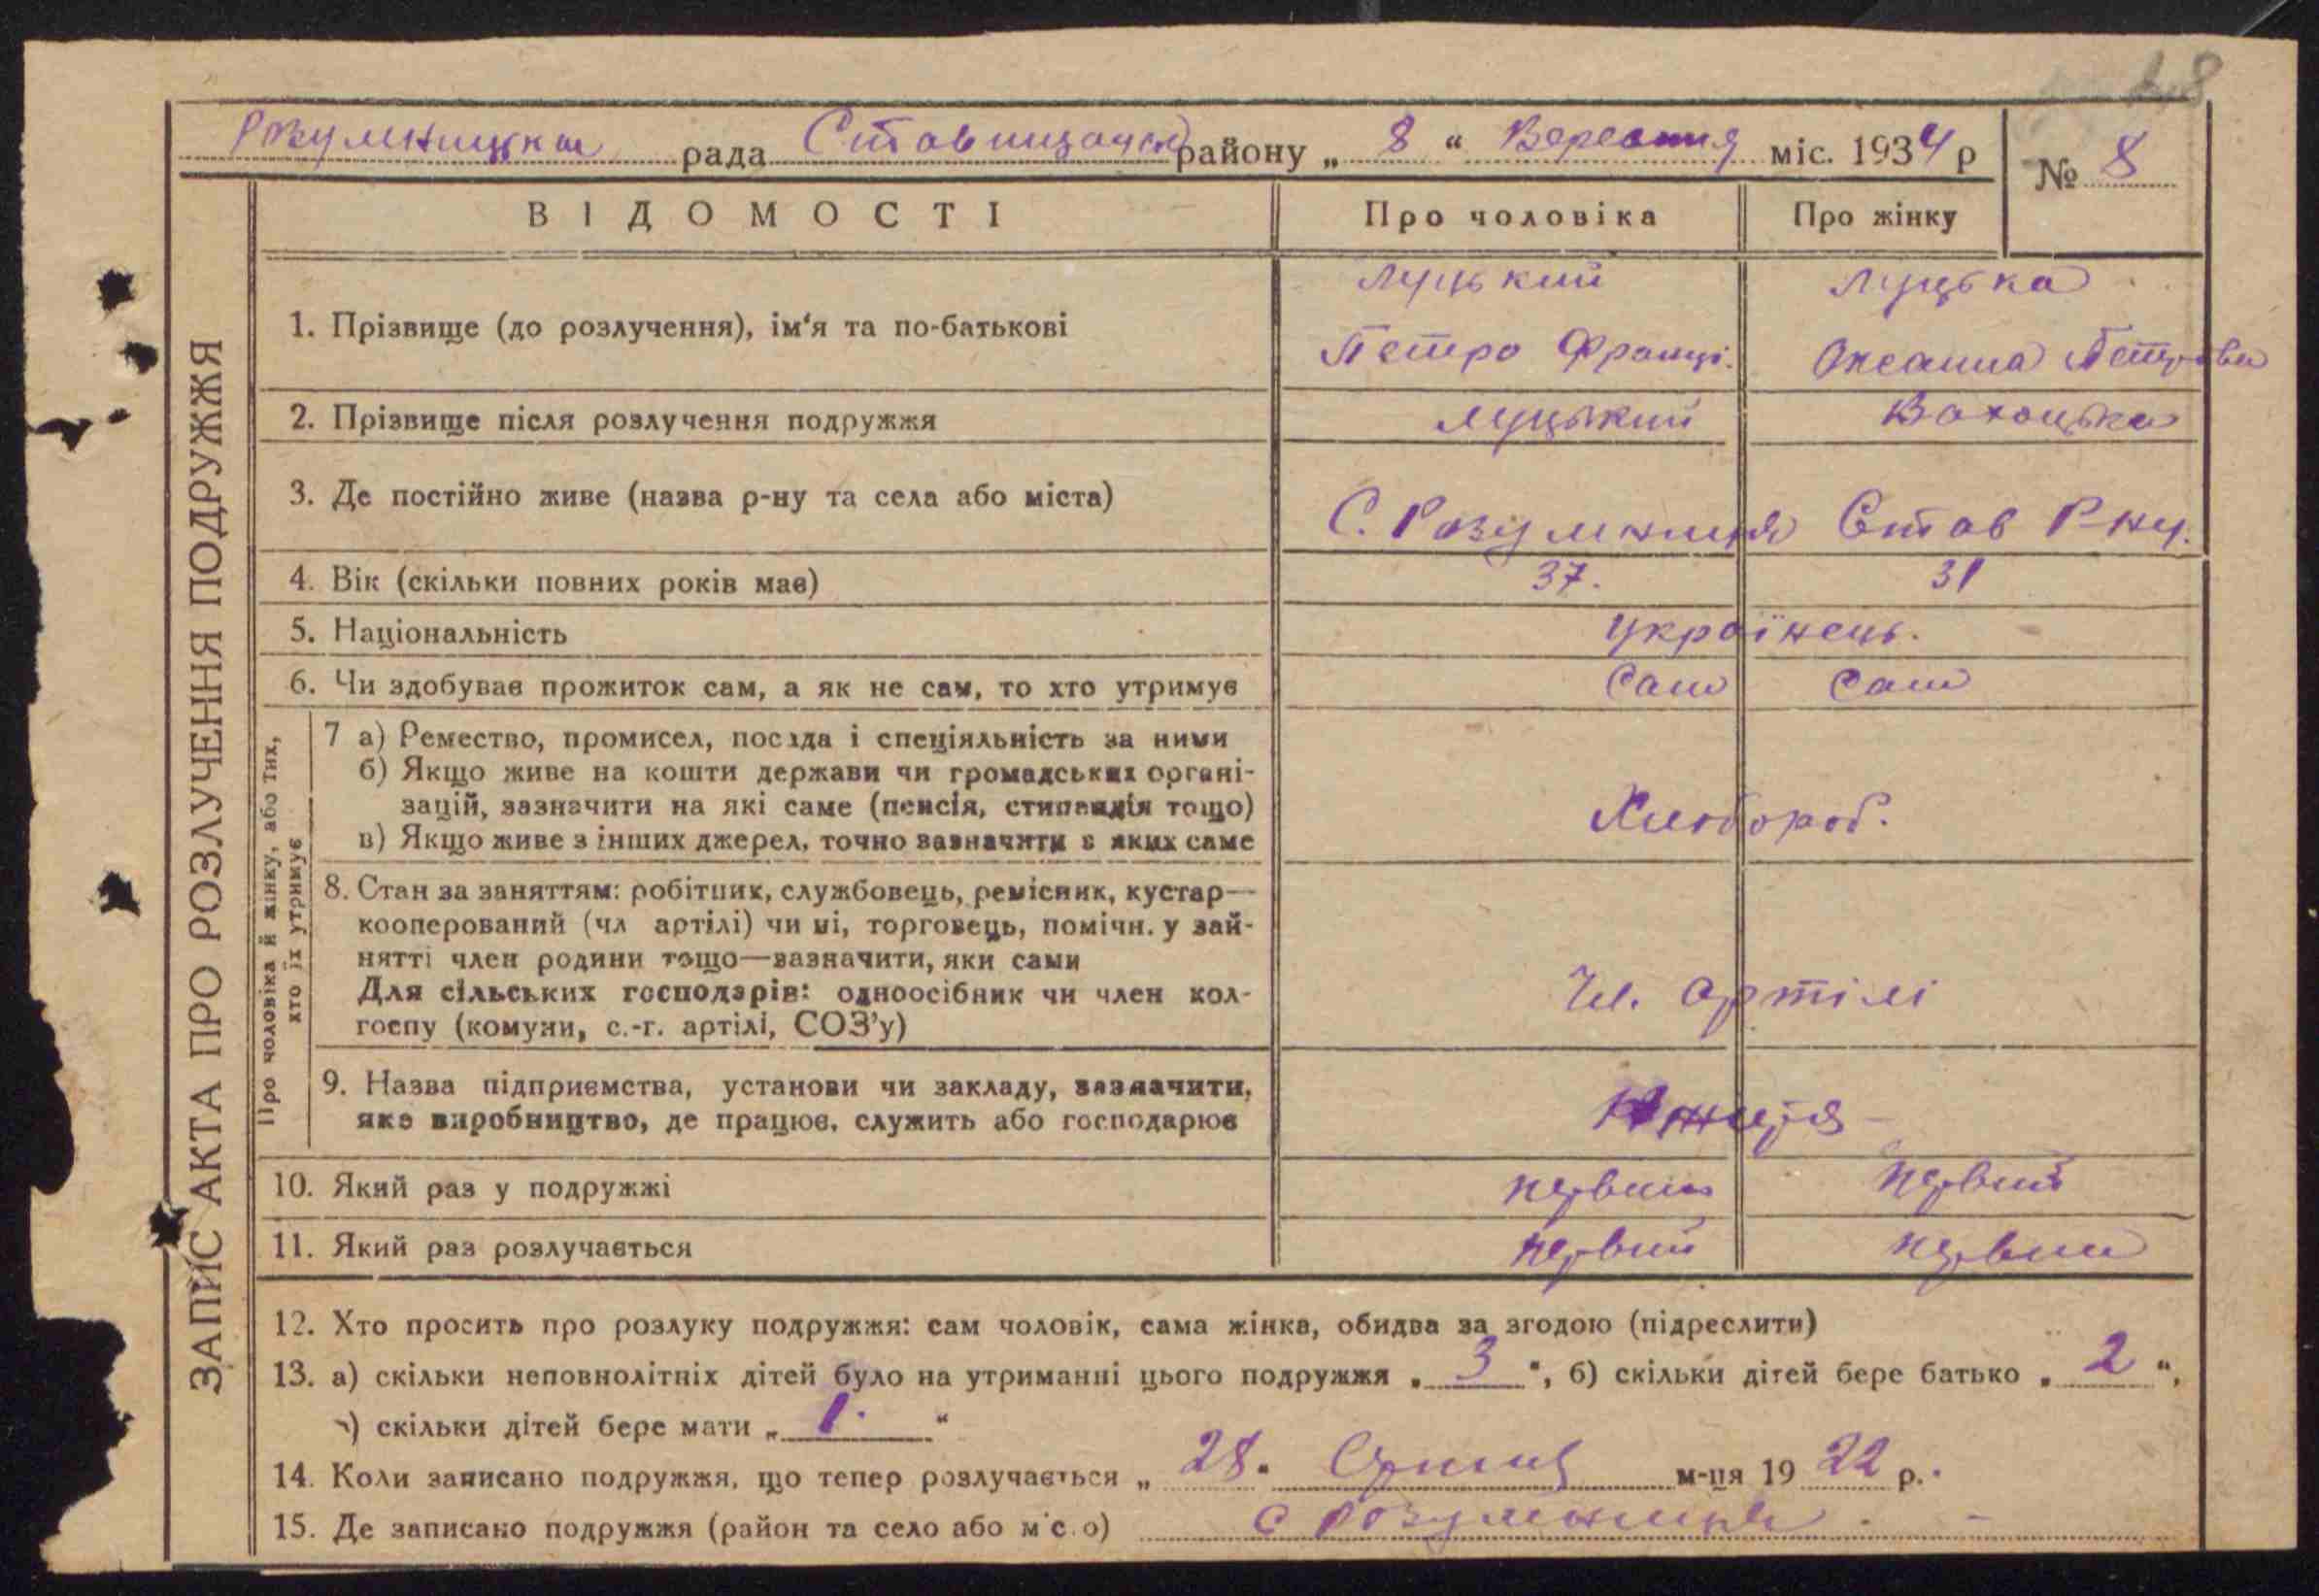 28
Розумницька рада Ставищанськ району „ 8 “ Вересния міс. 1934 р № 8
ВІДОМОСТІ Про чоловіка Про жінку
Луцький Луцька
1. Прізвище (до розлучення), ім'я та по-батькові
Петро Франці. Оксанна Петрова
2. Прізвище після розлучення подружжя Луцький
3. Де постійно живе (назва р-ну та села або міста) С. Розумниця Став Р-ну.
4. Вік (скільки повних років має) 37. 31
5. Національність Українець.
6. Чи здобуває прожиток сам, а як не сам, то хто утримує Сам Сам
7 а) Ремество, промисел, посада і спеціяльність за ними
б) Якщо живе на кошти держави чи громадських органі-
зацій, зазначити на які саме (пенсія, стипендія тощо)
Хлібороб.
в) Якщо живе з інших джерел, точно зазначити з яких саме
8. Стан за заняттям: робітник, службовець, ремісник, кустар—
кооперований (чл артілі) чи ні, торговець, помічн. у зай-
нятті член родини тощо—зазначити, яки сами
Для сільських господарів: одноосібник чи член кол-
Чл. артілі
госпу (комуни, с.-г. артілі, СОЗ'у)
9. Назва підприємства, установи чи закладу, зазначити,
яке виробництво, де працює, служить або господарює
10. Який раз у подружжі первий первий
11. Який раз розлучається первий первий
Про чоловіка й жінку, або тих,
хто їх утримує
ЗАПИС АКТА ПРО РОЗЛУЧЕННЯ ПОДРУЖЖЯ
12. Хто просить про розлуку подружжя: сам чоловік, сама жінка, обидва за згодою (підреслити)
13. а) скільки неповнолітніх дітей було на утриманні цього подружжя „ 3 “, б) скільки дітей бере батько „ 2 “,
) скільки дітей бере мати „ 1. “
14. Коли записано подружжя, що тепер розлучається „ 28. м-ця 19 22 р.
15. Де записано подружжя (район та село або м с о) с Розумниця